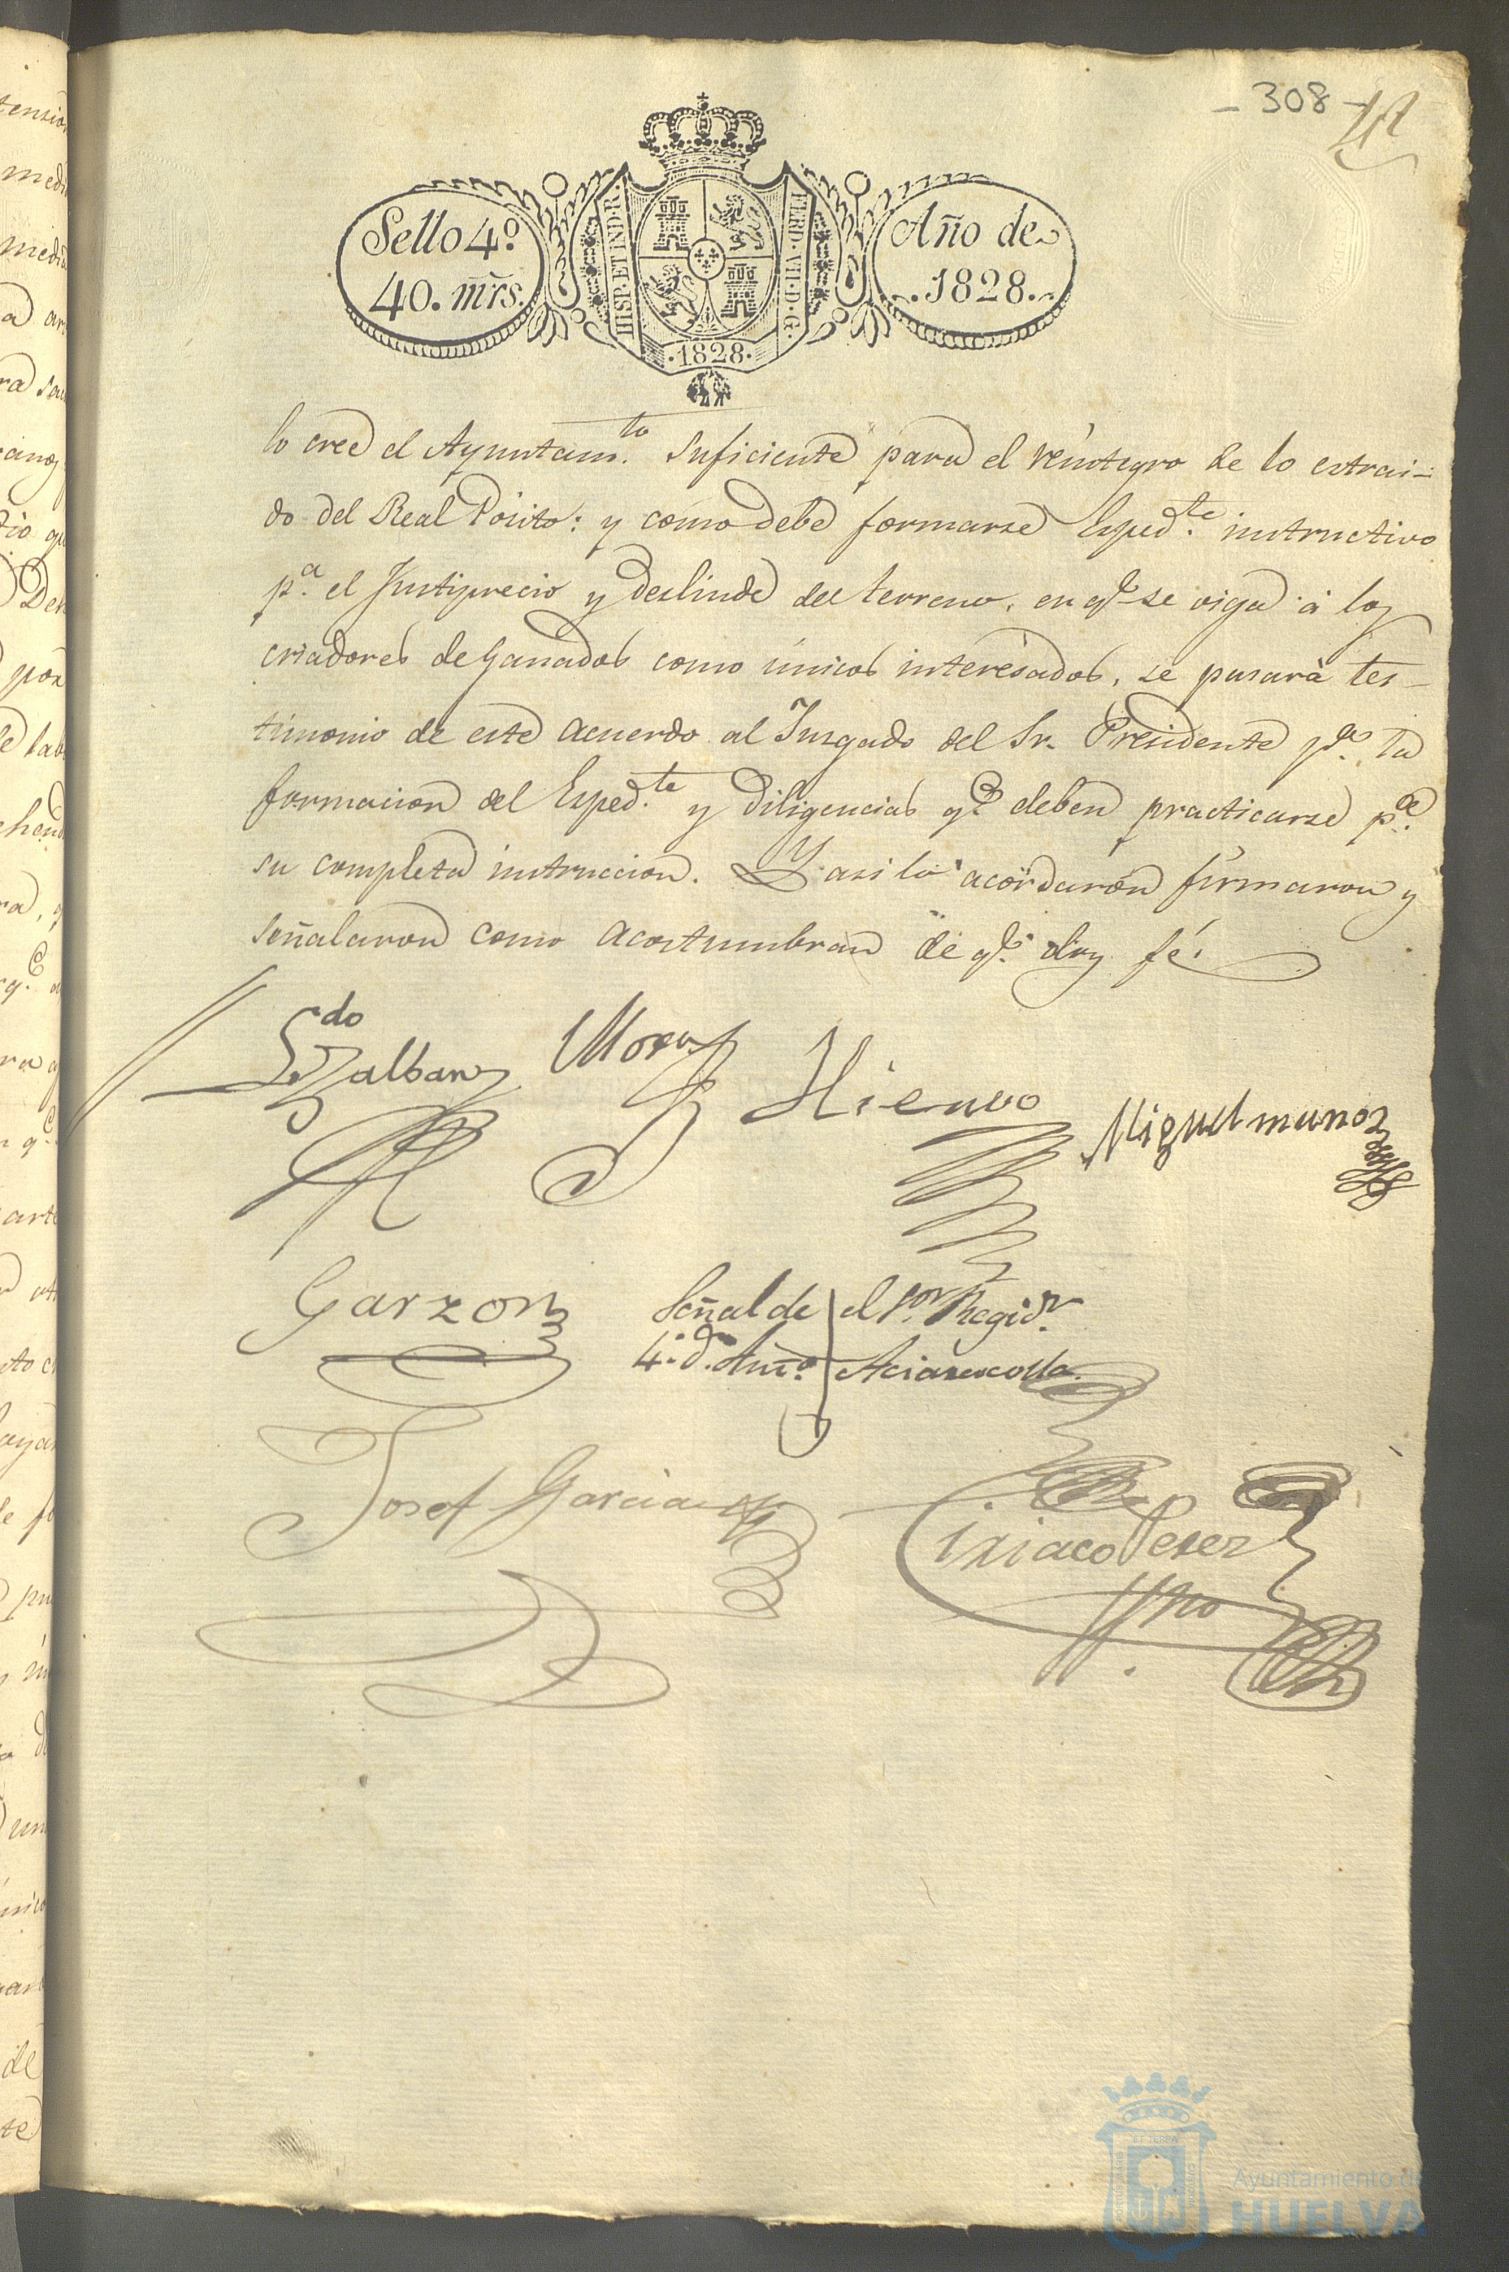 - 308 -
Sello 4º
40. mrs.
HISP. ET IND. R.
FERD. VII. D. G.
·1828·
Año de
1828.
lo cree el Ayuntam.to suficiente para el reintegro de lo estrai-
do del Real Posito: y como debe formarse Esped.te instructivo
p.a el Justiprecio y deslinde del terreno, en q.e se oiga á los
criadores de Ganados como únicos interesados, se pasará tes-
timonio de este acuerdo al Juzgado del Sr. Presidente p.a la
formacion del Esped.te y diligencias q.e deben practicarse p.a
su completa instruccion. Y asi lo acordaron firmaron y
señalaron como acostumbran de q.e doy fé.
L.do Zalbar Mora Hierro Miguel munoz
Garzon
Señal de el S.or Regid.r
4.º d.n Ant.º
Josef Garcia
Ciriaco Perez
Ayuntamiento de
HUELVA